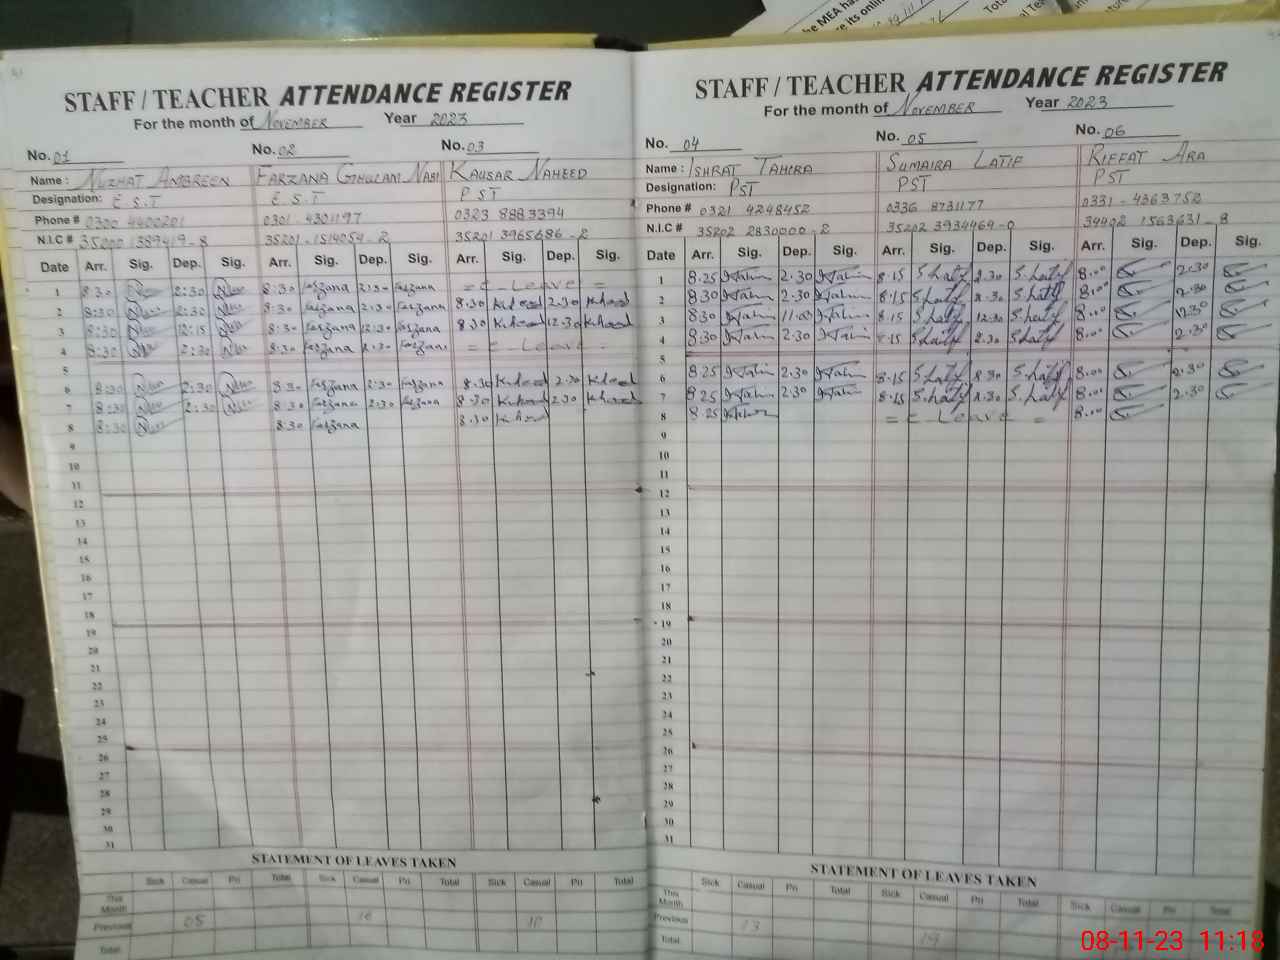 the MEA ha
re its onlin
STAFF / TEACHER ATTENDANCE REGISTER
For the month of November Year 2023
No. 01 No. 02 No. 03
Name : NUZHAT AMBREEN FARZANA GHULAM NABI KAUSAR NAHEED
Designation: E.S.T E.S.T PST
Phone # 0300 4400201 0301-4301197 0323 8883394
N.I.C # 35200 1389419-8 35201-1514054-2 35201 3965686-2
Date Arr. Sig. Dep. Sig. Arr. Sig. Dep. Sig. Arr. Sig. Dep. Sig.
1 8:30 2:30 8:30 Farzana 2:30 Farzana = C-Leave =
2 8:30 2:30 8:30 Farzana 2:30 Farzana 8.30 2.30
3 8:30 12:15 8:30 Farzana 12:30 Farzana 8.30 12.30
4 8:30 2:30 8:30 Farzana 2:30 Farzana = C Leave =
5
6 8:30 2:30 8:30 Farzana 2:30 Farzana 8.30 2.30
7 8:30 2:30 8:30 Farzana 2:30 Farzana 8.30 2.30
8 8:30 8:30 Farzana 8.30
9
10
11
12
13
14
15
16
17
18
19
20
21
22
23
24
25
26
27
28
29
30
31
STATEMENT OF LEAVES TAKEN
Sick Casual Pri Total Sick Casual Pri Total Sick Casual Pri Total
This Month
Previous 05 10 10
Total
STAFF / TEACHER ATTENDANCE REGISTER
For the month of November Year 2023
No. 04 No. 05 No. 06
Name : ISHRAT TAHIRA SUMAIRA LATIF RIFFAT ARA
Designation: PST PST PST
Phone # 0321 4248452 0336 8731177 0331-4363752
N.I.C # 35202 2830000-2 35202 3934469-0 34402 1563631-8
Date Arr. Sig. Dep. Sig. Arr. Sig. Dep. Sig. Arr. Sig. Dep. Sig.
1 8.25 2.30 8.15 S.Latif 2.30 S.Latif 8.00 2.30
2 8.30 2.30 8.15 S.Latif 2.30 S.Latif 8.00 2.30
3 8.30 11.00 8.15 S.Latif 12.30 S.Latif 8.00 12.30
4 8.30 2.30 8.15 S.Latif 2.30 S.Latif 8.00 2.30
5
6 8.25 2.30 8.15 S.Latif 2.30 S.Latif 8.00 2.30
7 8.25 2.30 8.15 S.Latif 2.30 S.Latif 8.00 2.30
8 8.25 = C-Leave = 8.00
9
10
11
12
13
14
15
16
17
18
19
20
21
22
23
24
25
26
27
28
29
30
31
STATEMENT OF LEAVES TAKEN
Sick Casual Pri Total Sick Casual Pri Total Sick Casual Pri Total
This Month
Previous 13 19
Total
08-11-23 11:18